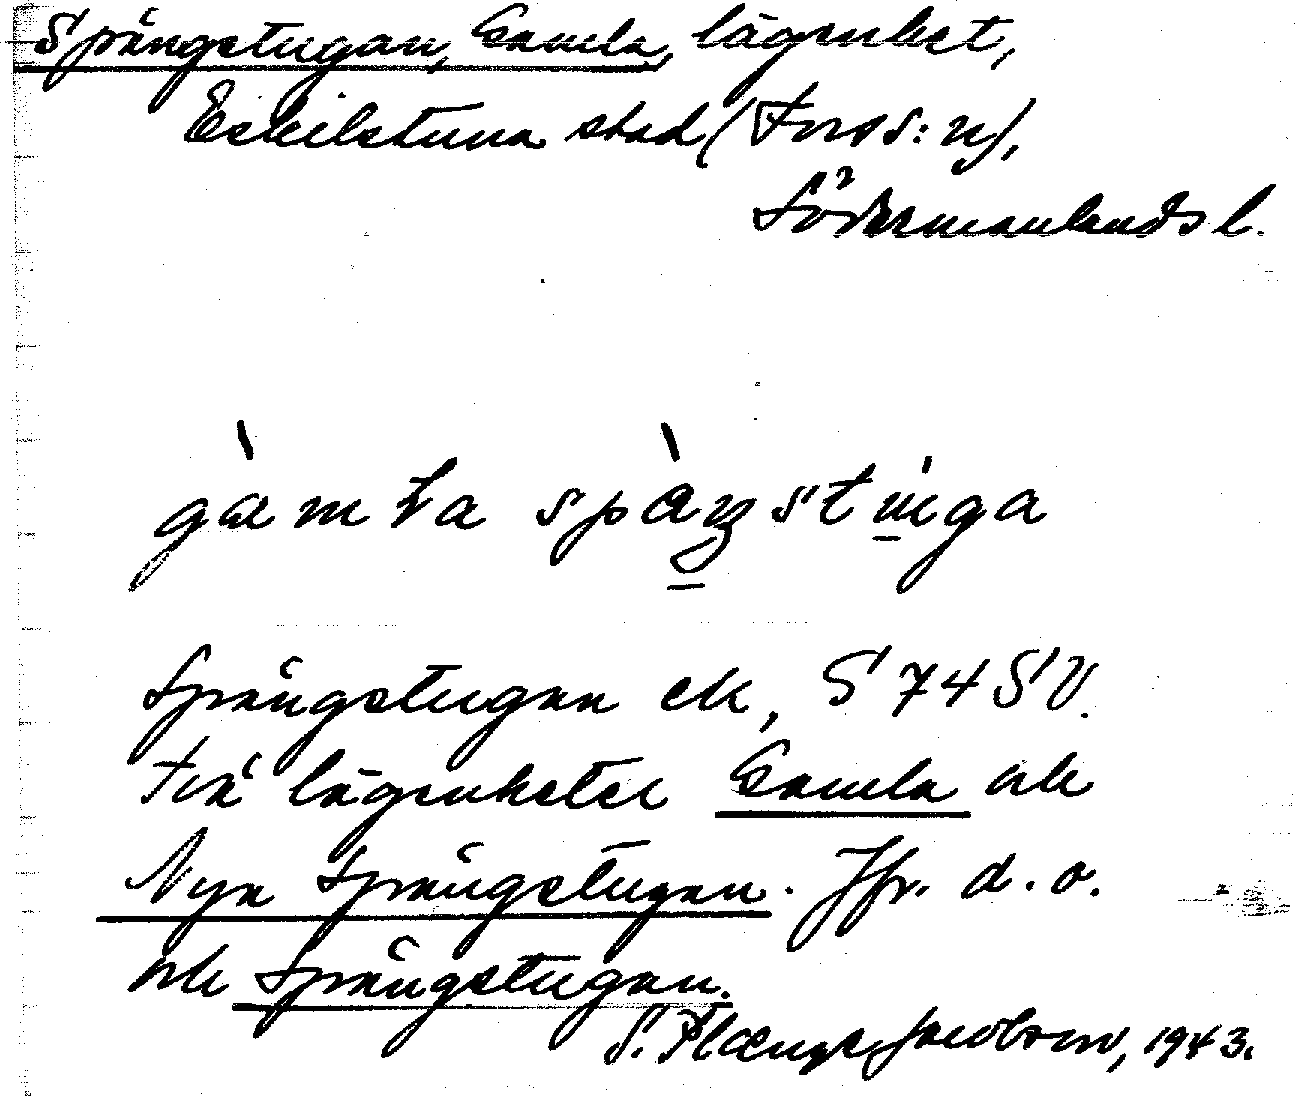 Spångstugan, Gamla, lägenhet,
Eskilstuna stad (Fors s:n),
Södermanlands l.
gàmla spàŋstuga
Spångstugan ek, S 74 SV.
Två lägenheter Gamla och
Nya Spångstugan. Jfr. d. o.
och Spångstugan.
S. Plænge Jacobson, 1943.